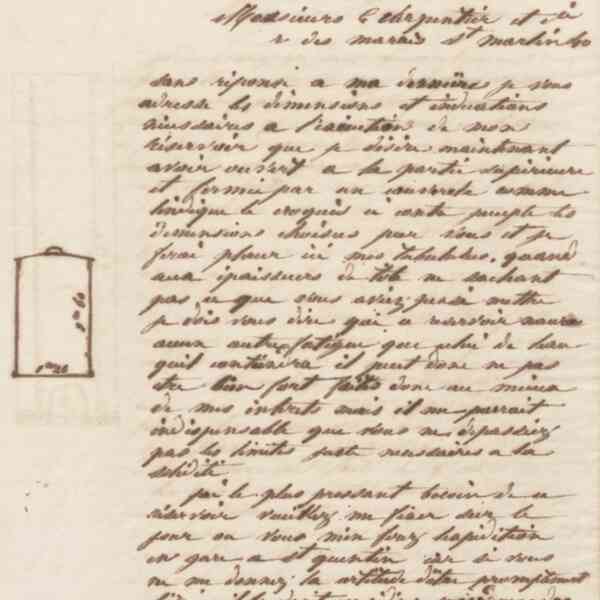 Messieurs C Charpentier et Cie
r des marais St martin 60
sans réponse a ma dernière je vous
adresse les dimensions et indications
nécessaires a l'exécution de mon
réservoir que je désire maintenant
avoir ouvert a la partie supérieure
et fermée par un couvercle comme
l'indique le croquis ci contre
dimensions choisies par vous et je
ferai placer ici mes tubulures, quand
aux épaisseurs de tole ne sachant
pas ce que vous aviez pensé mettre
je dois vous dire que ce reservoir n'aura
aucun autre fatigue que celui de l'eau
quil contiendra il peut donc ne pas
etre bien fort faites donc au mieux
de mes intérets mais il me parrait
indispensable que vous ne dépassiez
pas les limites juste necessaires a la
solidité
j'ai le plus pressant besoin de ce
réservoir veuillez me fixer sur le
jour ou vous m'en ferez l'expédition
en gare a St quentin car si vous
ne me donnez la certitude d'être promptement